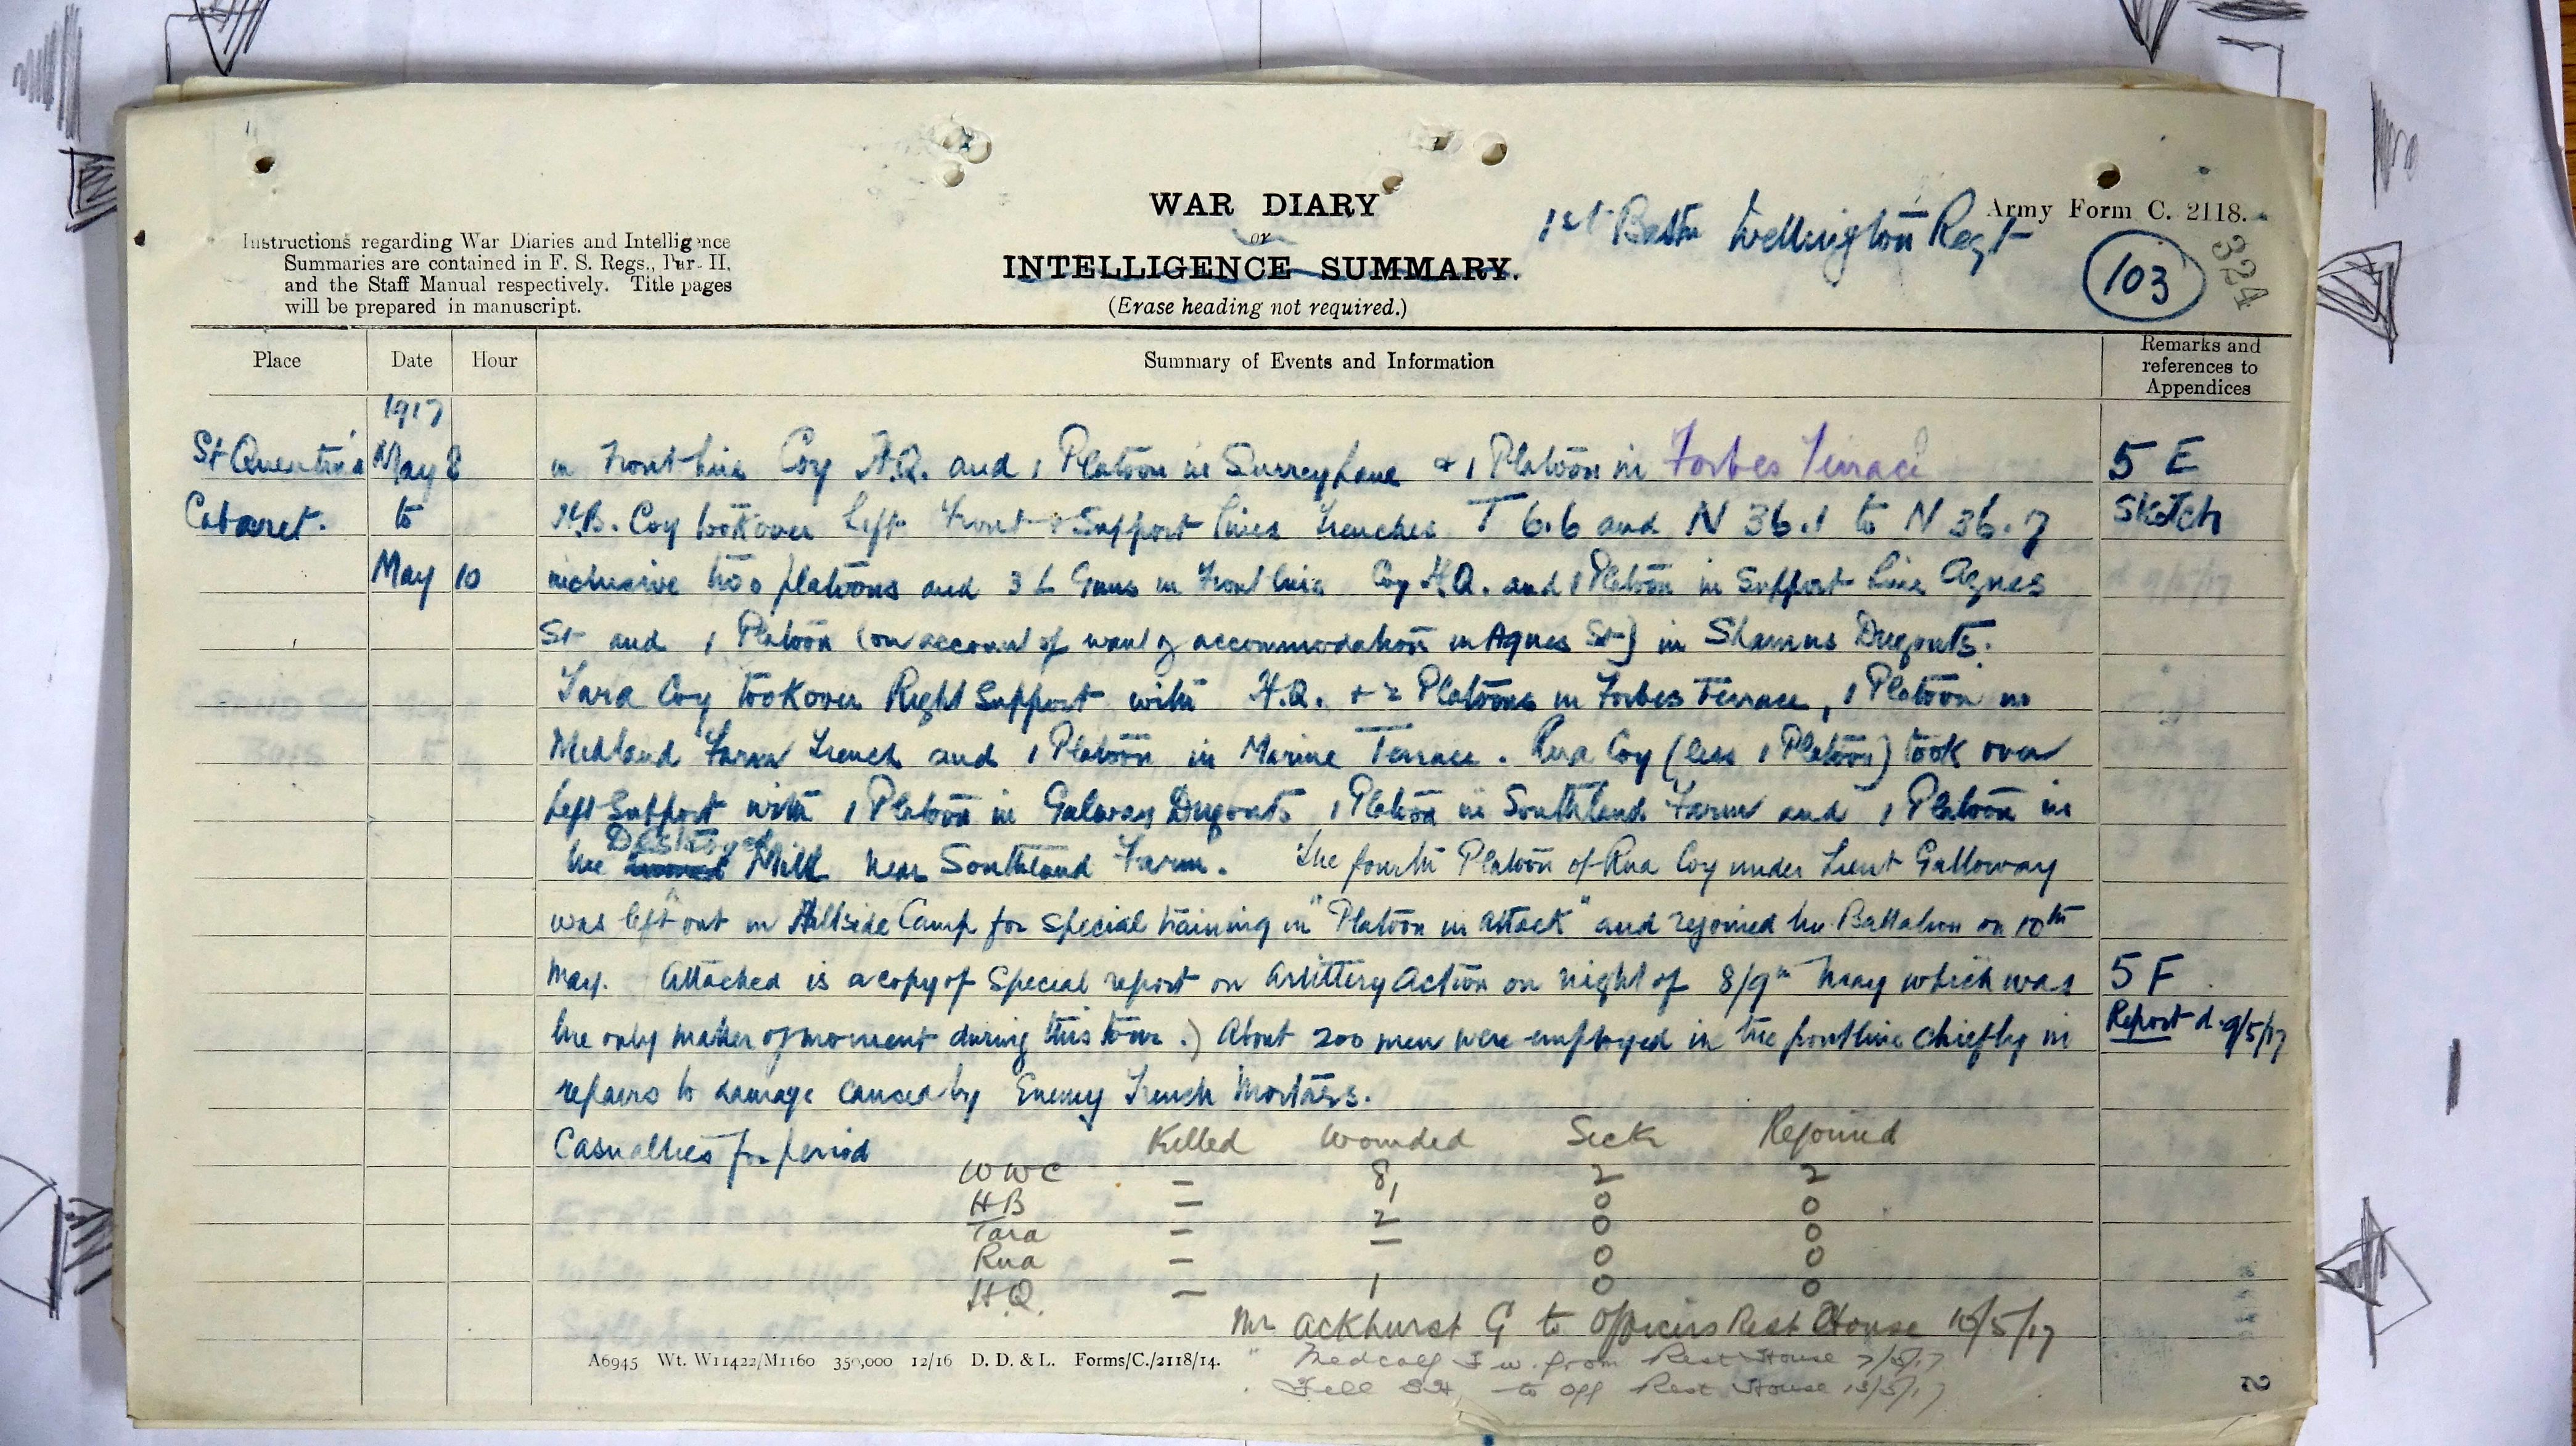 WAR DIARY
or
INTELLIGENCE SUMMARY.
(Erase heading not required.)
1st Battn Wellington Regt
Army Form C. 2118.
103
324
Instructions regarding War Diaries and Intelligence
Summaries are contained in F. S. Regs., Par. II.
and the Staff Manual respectively. Title pages
will be prepared in manuscript.
Place Date Hour Summary of Events and Information Remarks and references to Appendices
1917
St Quentin's May 8 in Front Line Coy H.Q. and 1 Platoon in Surrey Lane & 1 Platoon in Forbes Terrace 5 E
Cabaret. to H.B. Coy took over Left Front & Support Lines Trenches T 6.6 and N 36.1 to N 36.7 Sketch
May 10 inclusive two platoons and 3 L Guns in Front Line Coy H.Q. and 1 Platoon in Support Line Agnes
St and 1 Platoon (on account of want of accommodation in Agnes St) in Shamus Dugouts.
Tara Coy took over Right Support with H.Q. + 2 Platoons in Forbes Terrace, 1 Platoon in
Midland Farm Trench and 1 Platoon in Marine Terrace. Rua Coy (less 1 Platoon) took over
Left Support with 1 Platoon in Galway Dugouts, 1 Platoon in Southland Farm and 1 Platoon in
the Destroyed Mill near Southland Farm. The fourth Platoon of Rua Coy under Lieut Galloway
was left out in Hillside Camp for special training in "Platoon in attack" and rejoined the Battalion on 10th
May. Attached is a copy of Special report on Artillery Action on night of 8/9th May which was 5 F
the only matter of moment during this tour.) About 200 men were employed in the frontline chiefly in Report d. 9/5/17
repairs to damage caused by Enemy Trench Mortars.
Casualties for period Killed Wounded Sick Rejoined
WWC – 8 2 2
HB – 2 0 0
Tara – – 0 0
Rua – 0 0
H.Q. – 1 0 0
Mr Ackhurst G to Officers Rest House 10/5/17
" Medcalf F W. from Rest House 7/5/17
" Fell to Off Rest House 13/5/17
A6945 Wt. W11422/M1160 350,000 12/16 D. D. & L. Forms/C./2118/14.
2